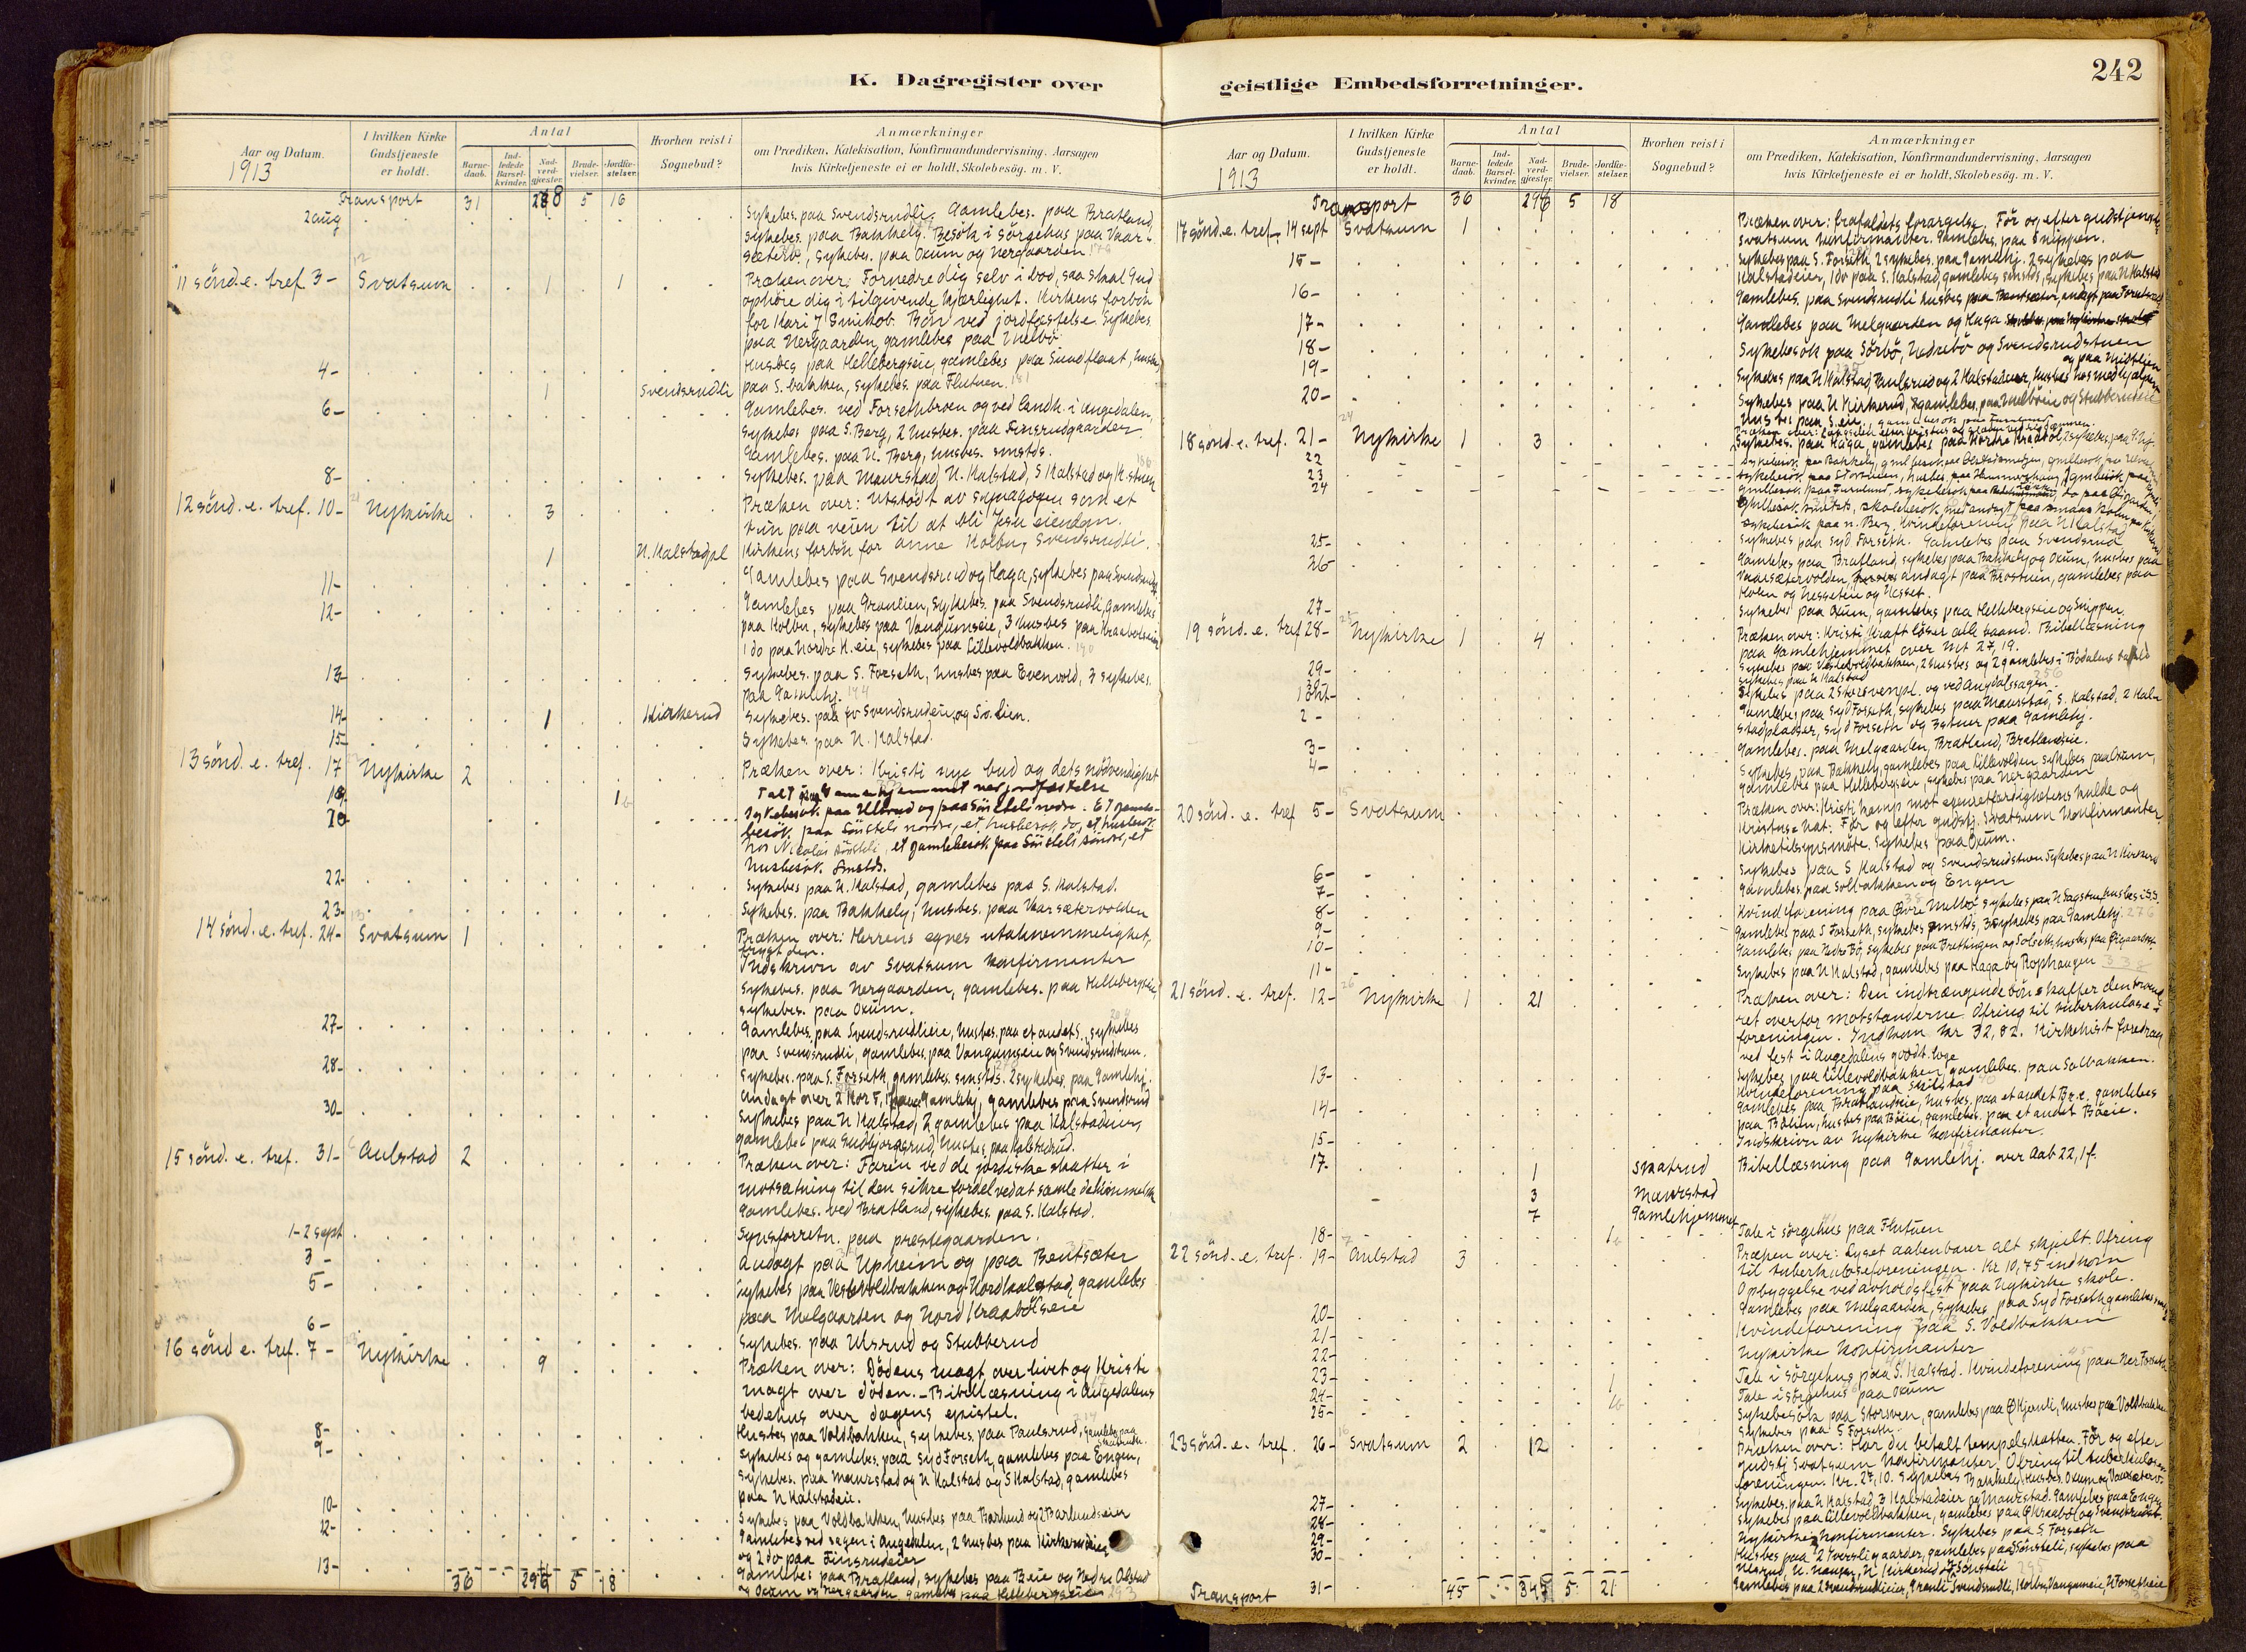 K. Dagregister over
Aar og Datum.
1913
I hvilken Kirke Gudstjeneste er holdt.
Antal
Barne-daab.
Ind-ledede Barsel-kvinder.
Nad-verd-gjæster.
Brude-vielser.
Jordfæ-stelser.
Hvorhen reist i Sognebud?
Anmærkninger
om Prædiken, Katekisation, Konfirmandundervisning. Aarsagen
hvis Kirketjeneste ei er holdt, Skolebesög. m. V.
Transport 31 5 16
2 aug Sykebes. paa Svendsrudli. Gamlebes. paa Bratland,
sykebes. paa Bakkely. Besök i sörgehus paa Vaar-
sæterv., sykebes. paa Oxum og Nergaarden
11 sönd. e. tref. 3- Svatsum 1 1 Præken over: Fornedre dig selv i bod, saa skal Gud
ophöie dig i tilgivende kjærlighet. Kirkens forbön
for Kari J Snikob. Bön ved jordfæstelse. Sykebes.
paa Nergaarden, gamlebes paa
4- Husbes paa Hellebergseie, gamlebes paa husbes
1 Svendsrudli paa S. bakken, sykebes. paa Flutuen.
6- Gamlebes. ved Forsethbroen og ved landh. i Augedalen,
sykebes paa S. Berg, 2 husbes. paa Finsrudgaarden
Gamlebes. paa N. Berg, husbes. smstds.
8- Sykebes. paa Maurstad, N. Kalstad, S Kalstad og K.stuen
12 sönd. e. tref. 10- Nykirke 3 Præken over: Utstödt av synagogen som et
trin paa veien til at bli Jesu eiendom.
1 N. Kalstadpl Kirkens forbön for Anne Kolbu, Svendsrudli.
11- Gamlebes paa Svendsrud og Haga, sykebes paa
12- Gamlebes paa Granlien, sykebes. paa Svendsrudli, gamlebes
paa Kolbu, sykebes paa Vangumseie, 3 husbes paa
1 do paa Nordre K. eie, sykebes paa Lillevoldbakken.
13- Sykebes. paa S. Forseth, husbes paa Evenvold, 3 sykebes.
paa Gamlehj.
14- 1 Kirkerud Sykebes. paa Svendsrudeie, og Sö. Lien.
15- Sykebes. paa N. Kalstad.
13 sönd. e. tref. 17 Nykirke 2 Præken over: Kristi nye bud og dets nödvendighet
18. 1 Talt paa Gamlehjemmet ved jordfæstelse
20 Sykebesök paa Ulsrud og paa nordre. Et gamle-
besök paa nordre, et husbesök do, et husbesök
hos Nicolai et gamlebesök paa söndre, et
husbesök. smstds.
22- Sykebes paa N. Kalstad, gamlebes paa S. Kalstad.
23- Sykebes. paa Bakkely, husbes. paa Vaarsætervolden
14 sönd. e. tref. 24- Svatsum 1 Præken over: Herrens egnes utaknemmelighet,
Indskrivn av Svatsum konfirmanter
Sykebes. paa Nergaarden, gamlebes. paa Hellebergseie,
sykebes. paa Oxum.
27- Gamlebes. paa Svendsrudlieie, husbes. paa et andet S. sykebes
paa Svendsrudli, gamlebes. paa Vangumseie og Svendsrudstuen.
28- Sykebes. paa S. Forseth, gamlebes. smstds. 2 sykebes. paa Gamlehj.
Andagt over 2 Kor 5, paa Gamlehj, gamlebes paa Svendsrud
30- Sykebes paa N Kalstad, 2 gamlebes paa Kalstadeier,
gamlebes paa Gudbjorgsrud, husbes, paa Kalstadrud.
15 sönd. e. tref. 31- Aulstad 2 Præken over: Faren ved de jordiske skatter i
motsætning til den sikre fordel ved at samle de himmelske
Gamlebes. ved Bratland, sykebes. paa S. Kalstad.
1-2 sept Synsforretn. paa prestegaarden.
3- Andagt paa Upheim og paa Bentsæter
5- Sykebes paa Vestevoldbakken og Nordkalstad, gamlebes
paa Melgaarden og Nord Kraabölseie
6- Sykebes. paa Ulsrud og Stubberud
16 sönd e. tref. 7- Nykirke 9 Præken over: Dödens magt over livet og Kristi
magt over döden. - Bibellæsning i Augedalens
bedehus over dagens epistel.
8- Husbes paa Voldbakken, sykebes. paa Paulsrud,
9- Sykebes og gamlebes. paa Syd Forseth, gamlebes paa Engen,
sykebes. paa Maurstad og N Kalstad og S Kalstad, gamlebes
paa N Kalstadeie.
10- Sykebes paa Voldbakken, husbes paa Barlund og 2 Barlundseier
12- Gamlebes ved sagen i Augedalen, 2 husbes paa Kirkerudeier
og 2 do paa Finsrudeier
13- Gamlebes paa Bratland, sykebes paa Beie og Nedre Olstad
og Oxum og Nergaarden gamlebes paa Hellebergseie 293
36 296 5 18
242
geistlige Embedsforretninger.
Aar og Datum.
1913
I hvilken Kirke Gudstjeneste er holdt.
Antal
Barne-daab.
Ind-ledede Barsel-kvinder.
Nad-verd-gjæster.
Brude-vielser.
Jordfæ-stelser.
Hvorhen reist i Sognebud?
Anmærkninger
om Prædiken, Katekisation, Konfirmandundervisning. Aarsagen
hvis Kirketjeneste ei er holdt, Skolebesög. m. V.
Transport 36 296 5 18
17 sönd. e. tref. 14 sept Svatsum 1 Præken over: Frafaldets forargelse. Før og efter gudstjeneste
Svatsum konfirmanter. Gamlebes. paa Snippen.
15- Sykebes paa S. Forseth, 2 sykebes. paa Gamlehj. 2 sykebes paa
Kalstadeier, 1 do paa S. Kalstad, gamlebes smstds, sykebes paa N Kalstad
16- Gamlebes. paa Svendsrudli husbes paa Bentsæter, andagt paa
17- Gamlebes paa Melgaarden og Haga
18- Sykebesök paa Sörbö, Nedrebö og Svendsrudstuen
19- Sykebes paa N Kalstad, Paulsrud og 2 Kalstadeier, husbes hos
20- Sykebes paa N Kirkerud, gamlebes. paa og Stubberudeie
husbes paa S. eie,
18 sönd. e. tref. 21- Nykirke 1 3
22 Sykebes. paa Haga, gamlebes paa Nordre Kraaböl,
23
24
25- Sykebes paa Syd Forseth. Gamlebes paa Svendsrud
26 Gamlebes paa Bratland, sykebes paa Bakkely og Oxum, husbes paa
Vaarsætervolden, andagt paa Brostuen, gamlebes paa
Holen og Nesseteie og Nesset.
27- Sykebes paa Oxum, gamlebes paa Hellebergseie og Snippen.
19 sönd. e. tref 28- Nykirke 1 4 Præken over: Kristi kraft löser alle baand. Bibellæsning
paa Gamlehjemmet over Mt 27, 19.
29- Sykebes paa Vestevoldbakken, 2 husbes og 2 gamlebes i Bödalens
sykebes paa N Kalstad
30- Sykebes paa 2 Storsvenpl. og ved Augdalssagen.
1 okt- Gamlebes paa Syd Forseth, sykebes paa Maurstad, S. Kalstad, 2 Kal-
2- stadpladser, Syd Forseth og 3 stuer paa Gamlehj.
3- Gamlebes. paa Melgaarden, Bratland, Bratlandseie.
4- Sykebes. paa Bakkely, gamlebes paa Lillevolden, sykebes paa Oxum,
gamlebes paa Hellebergseie, sykebes paa Nergaarden
20 sönd. e. tref 5- Svatsum Præken over: Kristi kamp mot egenretfærdighetens kulde og
Kristne hat. För og efter gudstj. Svatsum konfirmanter.
Kirketilsynsmöte. Sykebes paa Oxum.
6- Sykebes paa S Kalstad og Svendsrudstuen Sykebes paa N Kirkerud
7- Gamlebes. paa Solbakken og Engen
8- Kvindeforening paa Övre sykebes paa N
9- Gamlebes paa S Forseth, sykebes smstds, 3 sykebes paa Gamlehj. 276
10- Gamlebes paa Nedre Bö, sykebes paa og Solseth, husbes paa
11- Sykebes paa N Kalstad, gamlebes paa Haga og Rophaugen 338
21 sönd. e. tref. 12- Nykirke 1 21 Præken over: Den indtrængende bön skaffer den
ret overfor motstanderne. Ofring til tuberkulose-
foreningen. Indkom Kr 32,82. Kirkehist foredrag
ved fest i Augedalens godt. loge
13- Sykebes paa Lillevoldbakken, gamlebes. paa Solbakken.
Kvindeforening paa Skilstad
14- Gamlebes paa Bratlandseie, husbes. paa et andet Br.e. gamlebes
paa Bölien, husbes paa Böeie, gamlebes. paa et andet Böeie.
15- Indskrivn av Nykirke konfirmanter.
17. 1 Skatrud Bibellæsning paa Gamlehj. over Aab 22, 1 f.
3 Maurstad
7 Gamlehjemmet
18- 1 Tale i sörgehus paa Flutuen
22 sönd. e. tref. 19- Aulstad 3 Præken over: Lyset aabenbarer alt skjult. Ofring
til tuberkuloseforeningen. Kr 10,75 indkom
Opbyggelse ved avholdsfest paa Nykirke skole.
20- Gamlebes paa Melgaarden, sykebes, paa Syd Forseth, gamlebes
21- Kvindeforening paa S. Voldbakken
22- Nykirke konfirmanter
23- 1 Tale i sörgehus paa S. Kalstad. Kvindeforening paa Ner Forseth
24- 1 Tale i sörgehus paa Oxum
25- Sykebesök paa Storsven, gamlebes paa Ø Kjønli, husbes paa Voldbakken
Sykebes paa S Forseth
23 sönd. e. tref. 26- Svatsum 2 12 Præken over: Har du betalt tempelskatten. För og efter
gudstj Svatsum konfirmanter. Ofring til tuberkulose-
foreningen. Kr. 27,10. Sykebes Bakkely, husbes. Oxum og Vaarsæterv.
27- Sykebes. paa N Kalstad, 3 Kalstadeier og Maurstad. Gamlebes paa Engen
28- Sykebes paa Lillevoldbakken, gamlebes paa Ø Kraaböl og Svendsrudst.
29- Nykirke konfirmanter. Sykebes paa S. Forseth
30- Husbes paa 2 gaarder, gamlebes paa sykebes paa
Ulsrud, N. Haugen, N Kirkerud og
31- Gamlebes paa 2 Svendsrudlieier, Granli Svendsrudli, Kolbu, Vangumseie, N Forsetheie
Transport 45 5 21